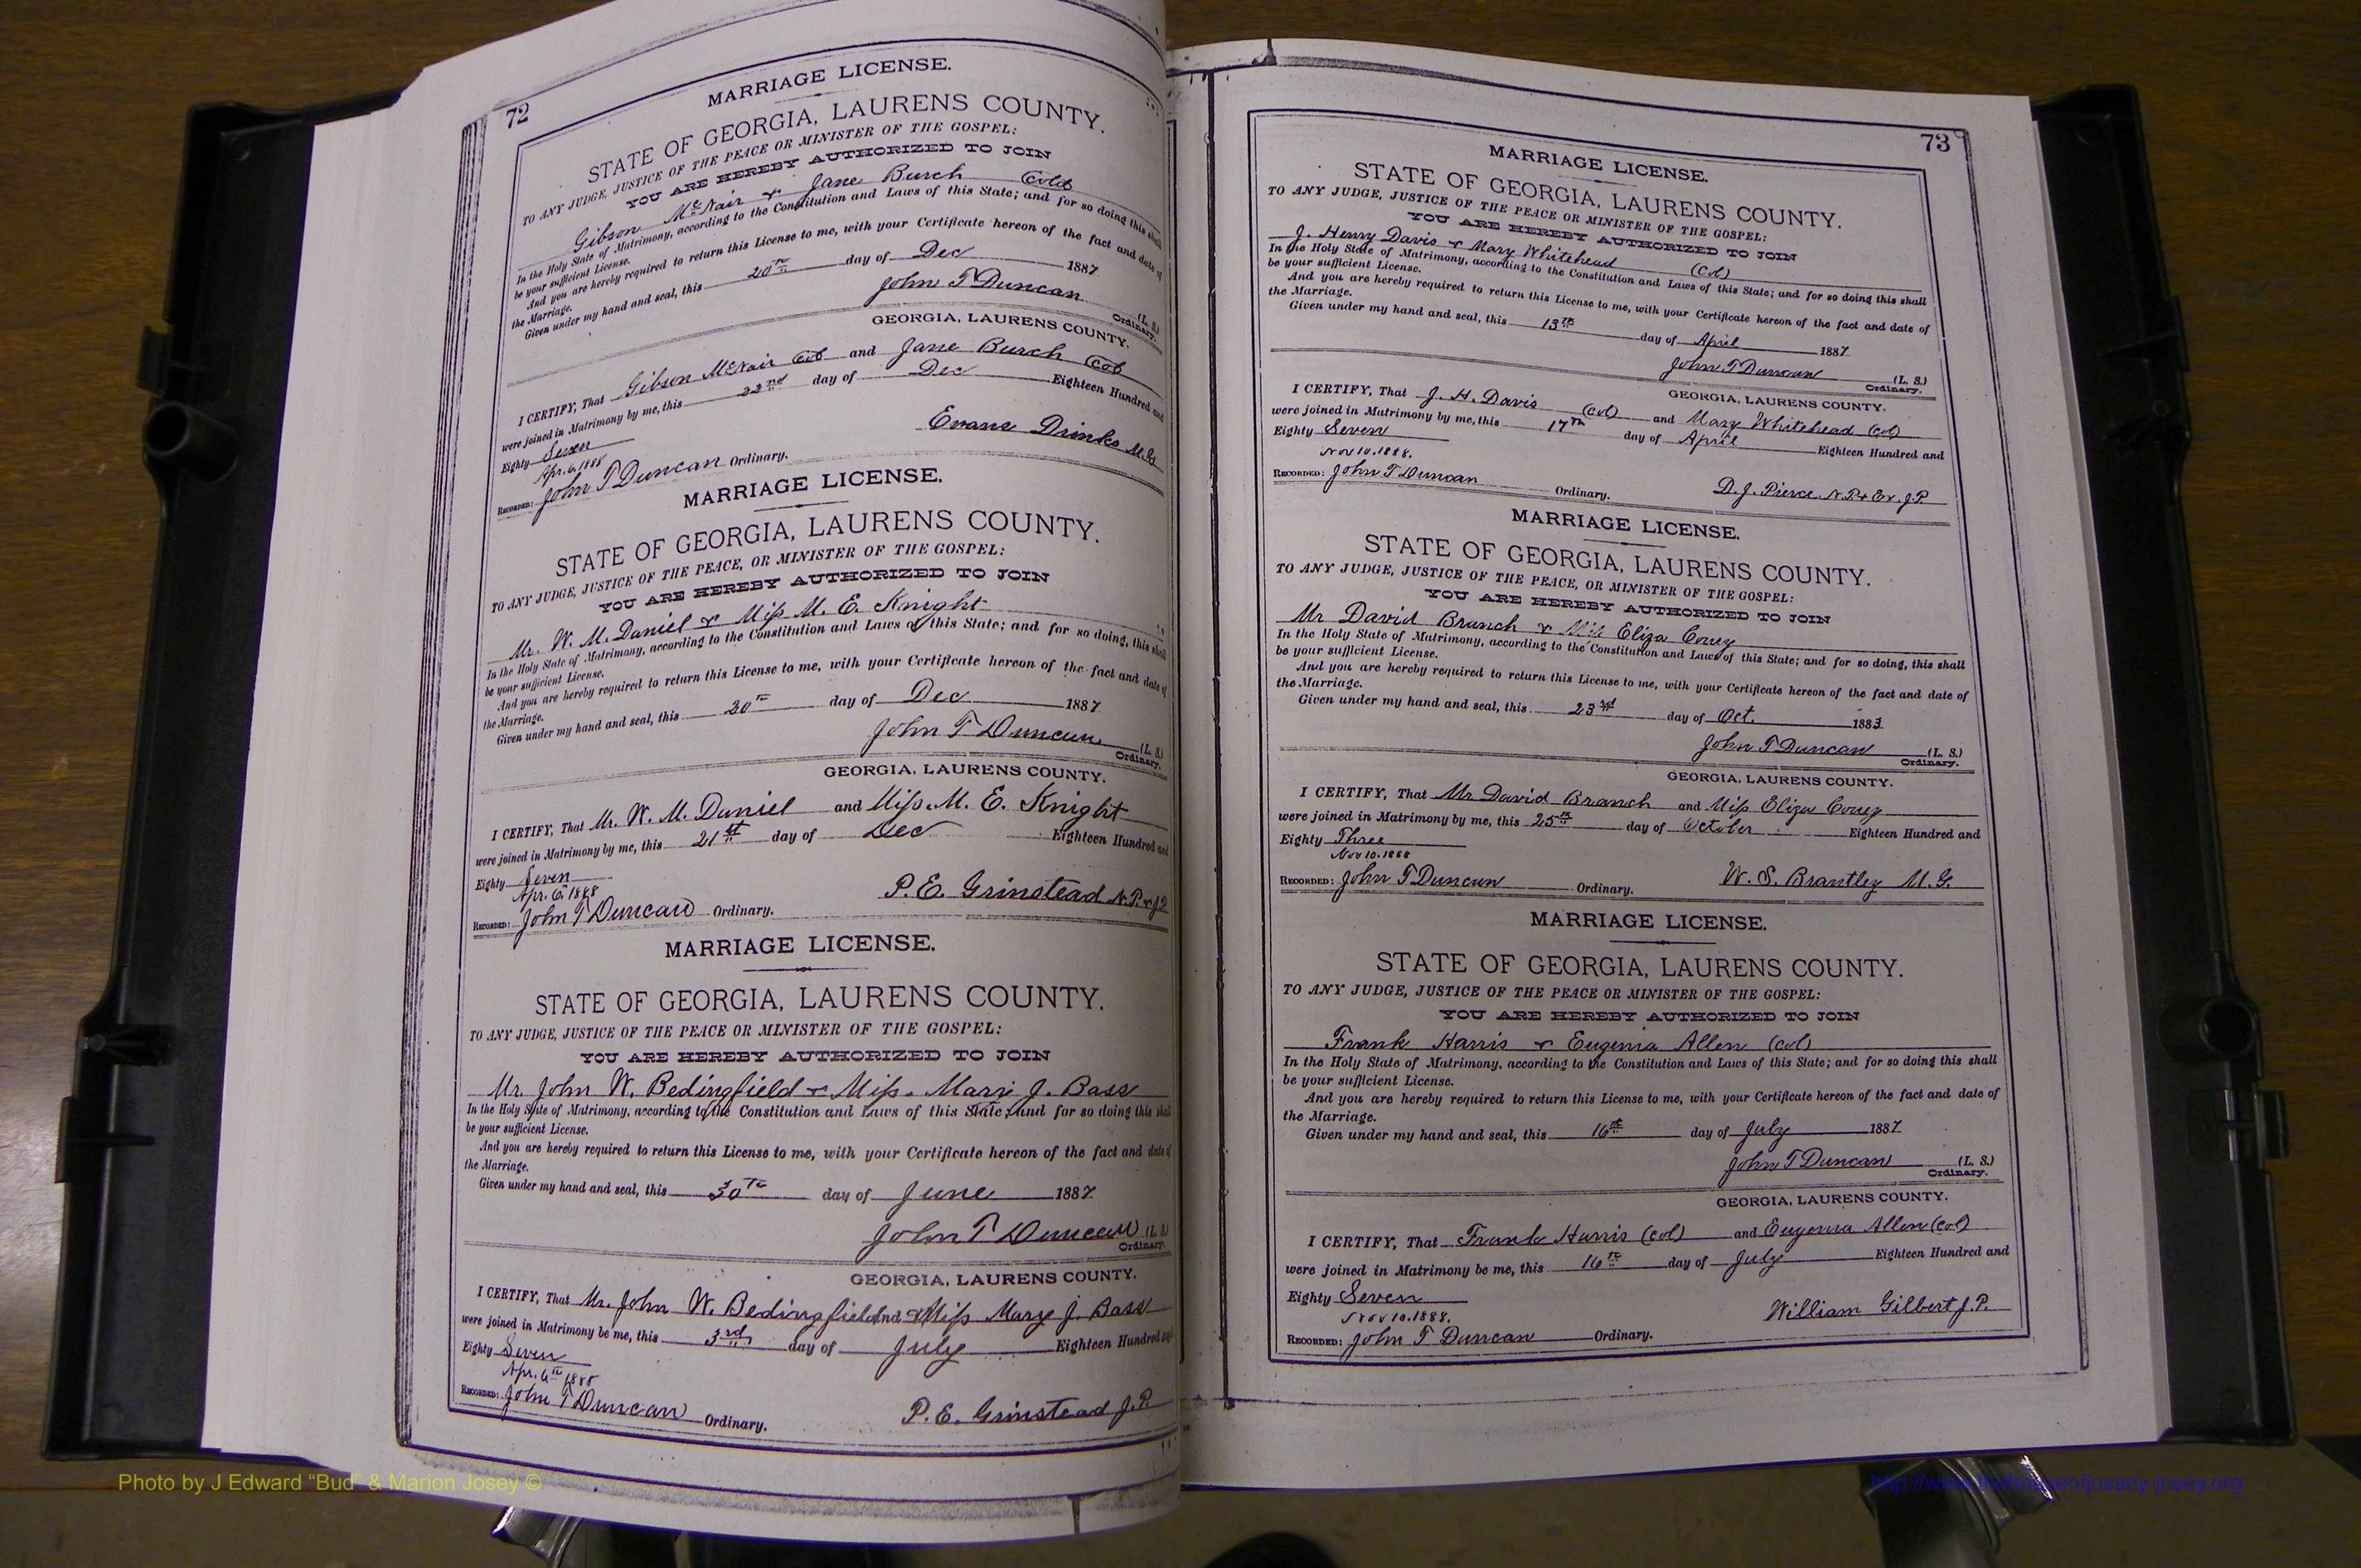 72
MARRIAGE LICENSE.
STATE OF GEORGIA, LAURENS COUNTY.
TO ANY JUDGE, JUSTICE OF THE PEACE OR MINISTER OF THE GOSPEL:
YOU ARE HEREBY AUTHORIZED TO JOIN
Gibson McNair & Jane Burch Cold
In the Holy State of Matrimony, according to the Constitution and Laws of this State; and for so doing this shall
be your sufficient License.
And you are hereby required to return this License to me, with your Certificate hereon of the fact and date of
the Marriage.
Given under my hand and seal, this 20th day of Dec 1887
John T Duncan (L. S.)
Ordinary.
GEORGIA, LAURENS COUNTY.
I CERTIFY, That Gibson McNair Col and Jane Burch Col
were joined in Matrimony by me, this 22nd day of Dec Eighteen Hundred and
Eighty Seven
Apr. 6. 1888
Evans Drinks M.G
RECORDED: John T Duncan Ordinary.
MARRIAGE LICENSE.
STATE OF GEORGIA, LAURENS COUNTY.
TO ANY JUDGE, JUSTICE OF THE PEACE, OR MINISTER OF THE GOSPEL:
YOU ARE HEREBY AUTHORIZED TO JOIN
Mr. W. M. Daniel & Miss M. E. Knight
In the Holy State of Matrimony, according to the Constitution and Laws of this State; and for so doing, this shall
be your sufficient License.
And you are hereby required to return this License to me, with your Certificate hereon of the fact and date of
the Marriage.
Given under my hand and seal, this 20th day of Dec 1887
John T Duncan (L. S.)
Ordinary.
GEORGIA, LAURENS COUNTY.
I CERTIFY, That Mr. W. M. Daniel and Miss. M. E. Knight
were joined in Matrimony by me, this 21st day of Dec Eighteen Hundred and
Eighty Seven
Apr. 6th 1888
P. E. Grinstead N.P. & J.P.
RECORDED: John T Duncan Ordinary.
MARRIAGE LICENSE.
STATE OF GEORGIA, LAURENS COUNTY.
TO ANY JUDGE, JUSTICE OF THE PEACE OR MINISTER OF THE GOSPEL:
YOU ARE HEREBY AUTHORIZED TO JOIN
Mr. John W. Bedingfield & Miss. Mary J. Bass
In the Holy State of Matrimony, according to the Constitution and Laws of this State; and for so doing this shall
be your sufficient License.
And you are hereby required to return this License to me, with your Certificate hereon of the fact and date of
the Marriage.
Given under my hand and seal, this 30th day of June 1887
John T Duncan (L. S.)
Ordinary.
GEORGIA, LAURENS COUNTY.
I CERTIFY, That Mr. John W. Bedingfield and Miss Mary J. Bass
were joined in Matrimony be me, this 3rd day of July Eighteen Hundred and
Eighty Seven
Apr. 6th 1888
RECORDED: John T Duncan Ordinary. P. E. Grinstead J.P.
73
MARRIAGE LICENSE.
STATE OF GEORGIA, LAURENS COUNTY.
TO ANY JUDGE, JUSTICE OF THE PEACE OR MINISTER OF THE GOSPEL:
YOU ARE HEREBY AUTHORIZED TO JOIN
J. Henry Davis & Mary Whitehead (Col)
In the Holy State of Matrimony, according to the Constitution and Laws of this State; and for so doing this shall
be your sufficient License.
And you are hereby required to return this License to me, with your Certificate hereon of the fact and date of
the Marriage.
Given under my hand and seal, this 13th day of April 1887
John T Duncan (L. S.)
Ordinary.
GEORGIA, LAURENS COUNTY.
I CERTIFY, That J. H. Davis (Col) and Mary Whitehead (Col)
were joined in Matrimony by me, this 17th day of April Eighteen Hundred and
Eighty Seven
Nov 10. 1888.
RECORDED: John T Duncan Ordinary. D. J. Pierce N.P. & Ex. J.P.
MARRIAGE LICENSE.
STATE OF GEORGIA, LAURENS COUNTY.
TO ANY JUDGE, JUSTICE OF THE PEACE, OR MINISTER OF THE GOSPEL:
YOU ARE HEREBY AUTHORIZED TO JOIN
Mr David Branch & Miss Eliza Coney
In the Holy State of Matrimony, according to the Constitution and Laws of this State; and for so doing, this shall
be your sufficient License.
And you are hereby required to return this License to me, with your Certificate hereon of the fact and date of
the Marriage.
Given under my hand and seal, this 23rd day of Oct. 1883
John T Duncan (L. S.)
Ordinary.
GEORGIA, LAURENS COUNTY.
I CERTIFY, That Mr David Branch and Miss Eliza Coney
were joined in Matrimony by me, this 25th day of October Eighteen Hundred and
Eighty Three
Nov 10. 1888
RECORDED: John T Duncan Ordinary. W. S. Brantley M. G.
MARRIAGE LICENSE.
STATE OF GEORGIA, LAURENS COUNTY.
TO ANY JUDGE, JUSTICE OF THE PEACE OR MINISTER OF THE GOSPEL:
YOU ARE HEREBY AUTHORIZED TO JOIN
Frank Harris & Eugenia Allen (Col)
In the Holy State of Matrimony, according to the Constitution and Laws of this State; and for so doing this shall
be your sufficient License.
And you are hereby required to return this License to me, with your Certificate hereon of the fact and date of
the Marriage.
Given under my hand and seal, this 16th day of July 1887
John T Duncan (L. S.)
Ordinary.
GEORGIA, LAURENS COUNTY.
I CERTIFY, That Frank Harris (Col) and Eugenia Allen (Col)
were joined in Matrimony be me, this 16th day of July Eighteen Hundred and
Eighty Seven
Nov 10. 1888.
William Gilbert J. P.
RECORDED: John T Duncan Ordinary.
Photo by J Edward “Bud” & Marion Josey ©
http://www.thehouseofjossey-josey.org